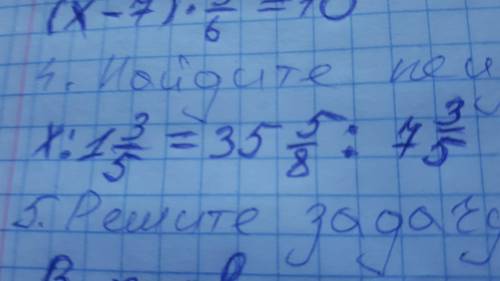 (x-7)·5/6=10
4. Найдите
x:1 3/5 = 35 5/8 : 7 3/5
5. Решите задачу